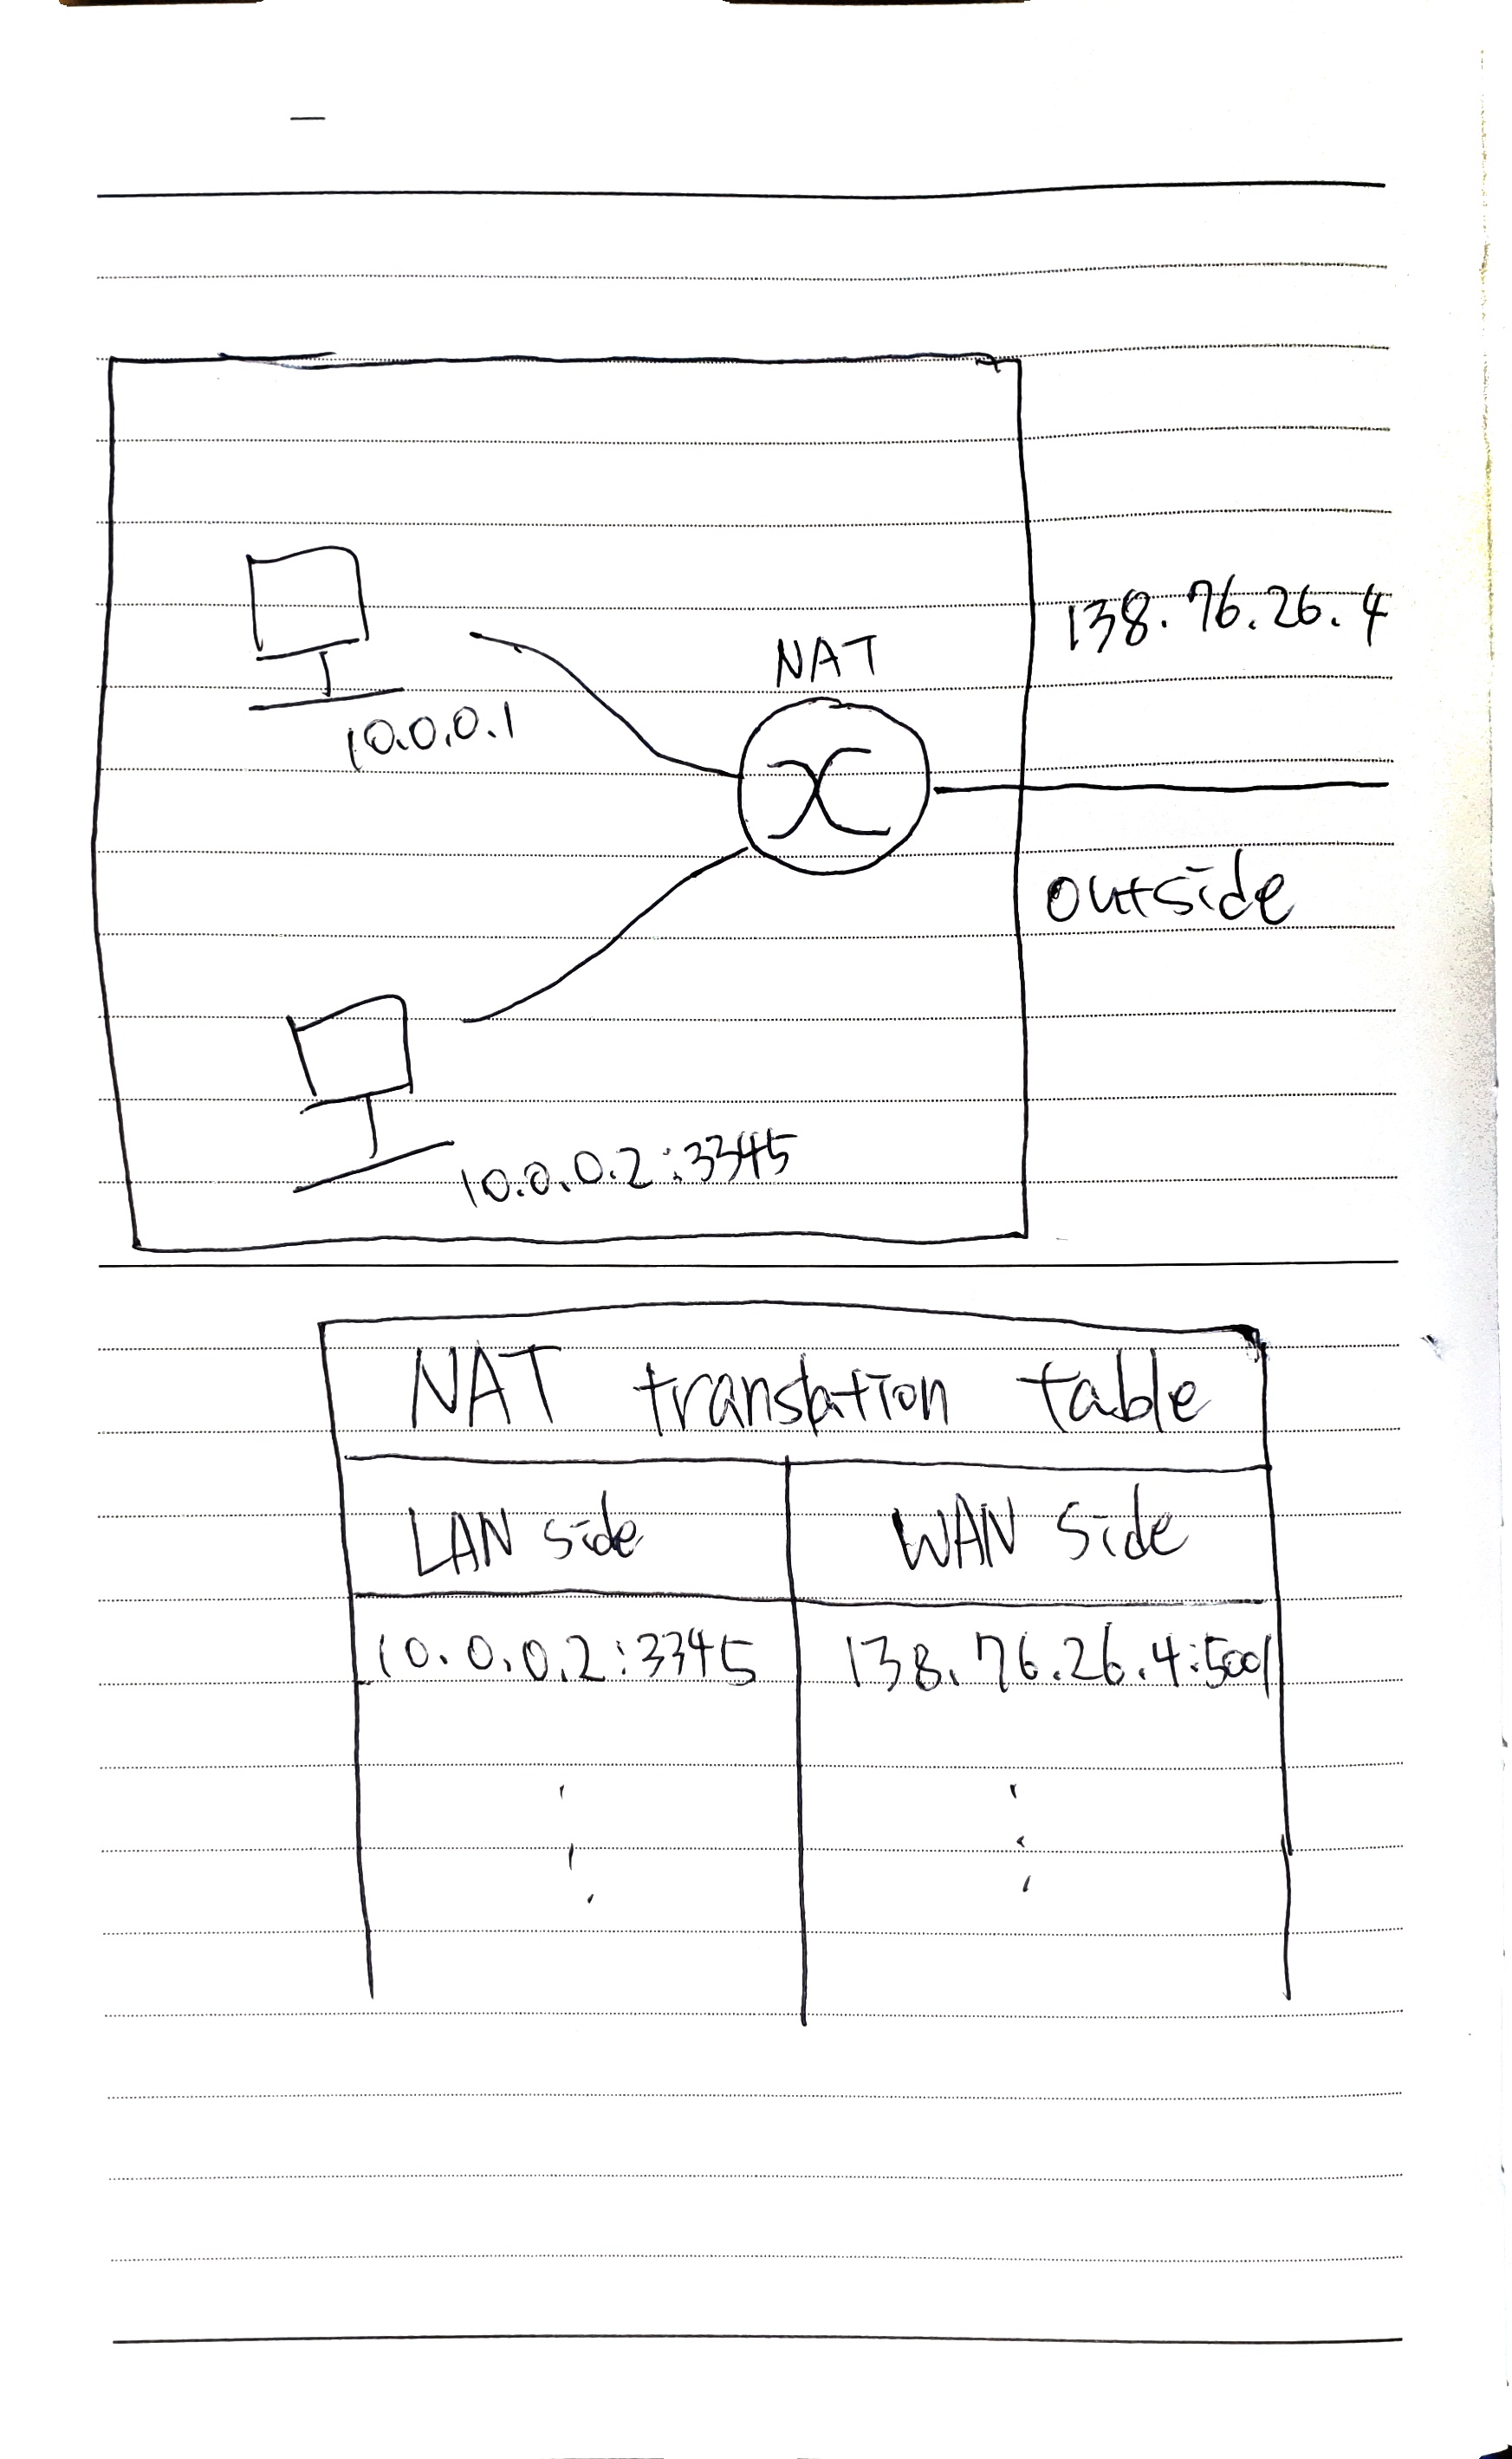 138.76.26.4
NAT
10.0.0.1
outside
10.0.0.2:3345
NAT translation table
LAN side WAN side
10.0.0.2:3345 138.76.26.4:5001